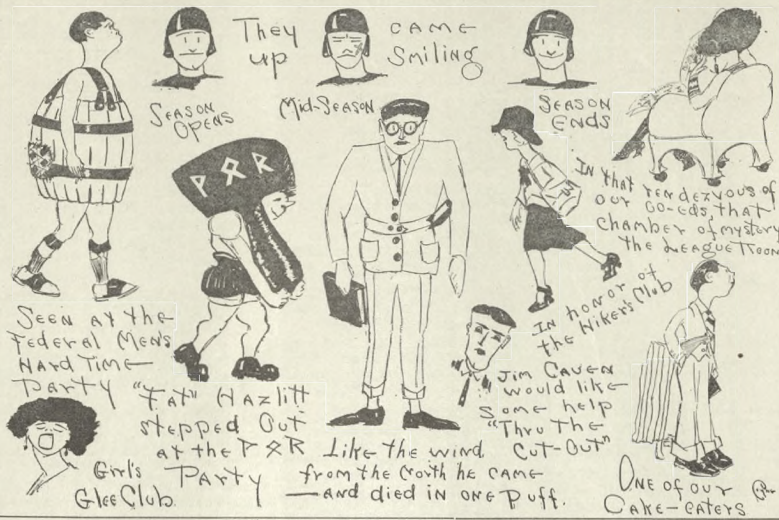 They
up
CAME
Smiling
SEASON
OPENS
MID-SEASON
SEASON
ENDS
ᚹ ᛟ R
IN that rendezvous of
our co-eds, that
chamber of mystery
the League Room
SEEN AT the
Federal Men's
Hard Time
Party
"Fat" Hazlitt
stepped Out
at the ᚹ ᛟ R
Party
Like the wind
from the North he came
—and died in one Puff.
In honor of
the Hiker's Club
Jim Caven
would like
some help
"Thru the
Cut-Out"
Girl's
Glee Club.
One of our
Cake-eaters